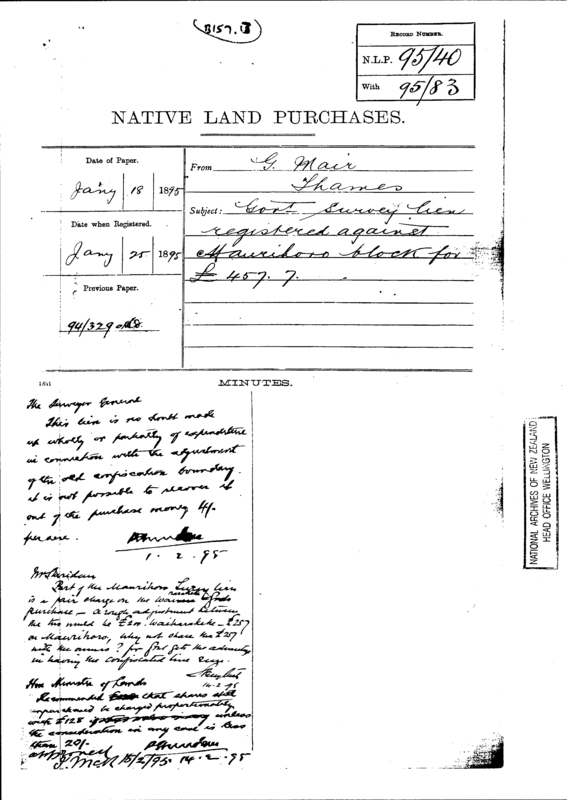 B157. B
RECORD NUMBER.
N.L.P. 95/40
With 95/83
NATIVE LAND PURCHASES.
Date of Paper.
Jany 18 1895
Date when Registered.
Jany 25 1895
Previous Paper.
94/329
From G. Mair
Thames
Subject: Govt Survey lien
registered against
Maurihoro block for
£ 457. 7.
MINUTES.
The Surveyor General
This lien is no doubt made
up wholly or partially of expenditure
in connection with the adjustment
of the old confiscation boundary.
it is not possible to recover it
out of the purchase money 4/-
per acre.
1. 2. 95
Mr Sheridan
Part of the Maurihoro Survey lien
is a fair charge on the
purchase — A rough adjustment between
the two would be £200 Waiharakeke — £257
on Maurihoro, why not share the £257
with the owners? for Govt gets the advantage
in having the confiscated line
14.2.95
Hon Minister of Lands
Recommended that shares
unpurchased be charged proportionately
with £128 unless
the consideration in any case is less
than 20/-
14.2.95
approved
J. McK 15/2/95
NATIONAL ARCHIVES OF NEW ZEALAND
HEAD OFFICE WELLINGTON